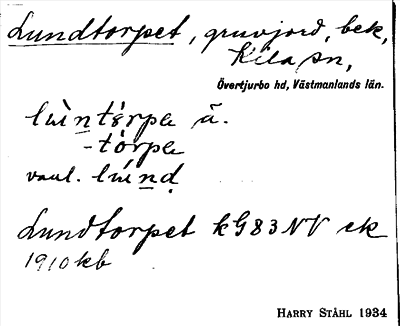 Lundtorpet, gruvjord, bek,
Kila sn,
Övertjurbo hd, Västmanlands län.
lùntórpe ä.
-tòrpe
vanl. lùnḍ
Lundtorpet kG83NV ek
1910kb
HARRY STÅHL 1934